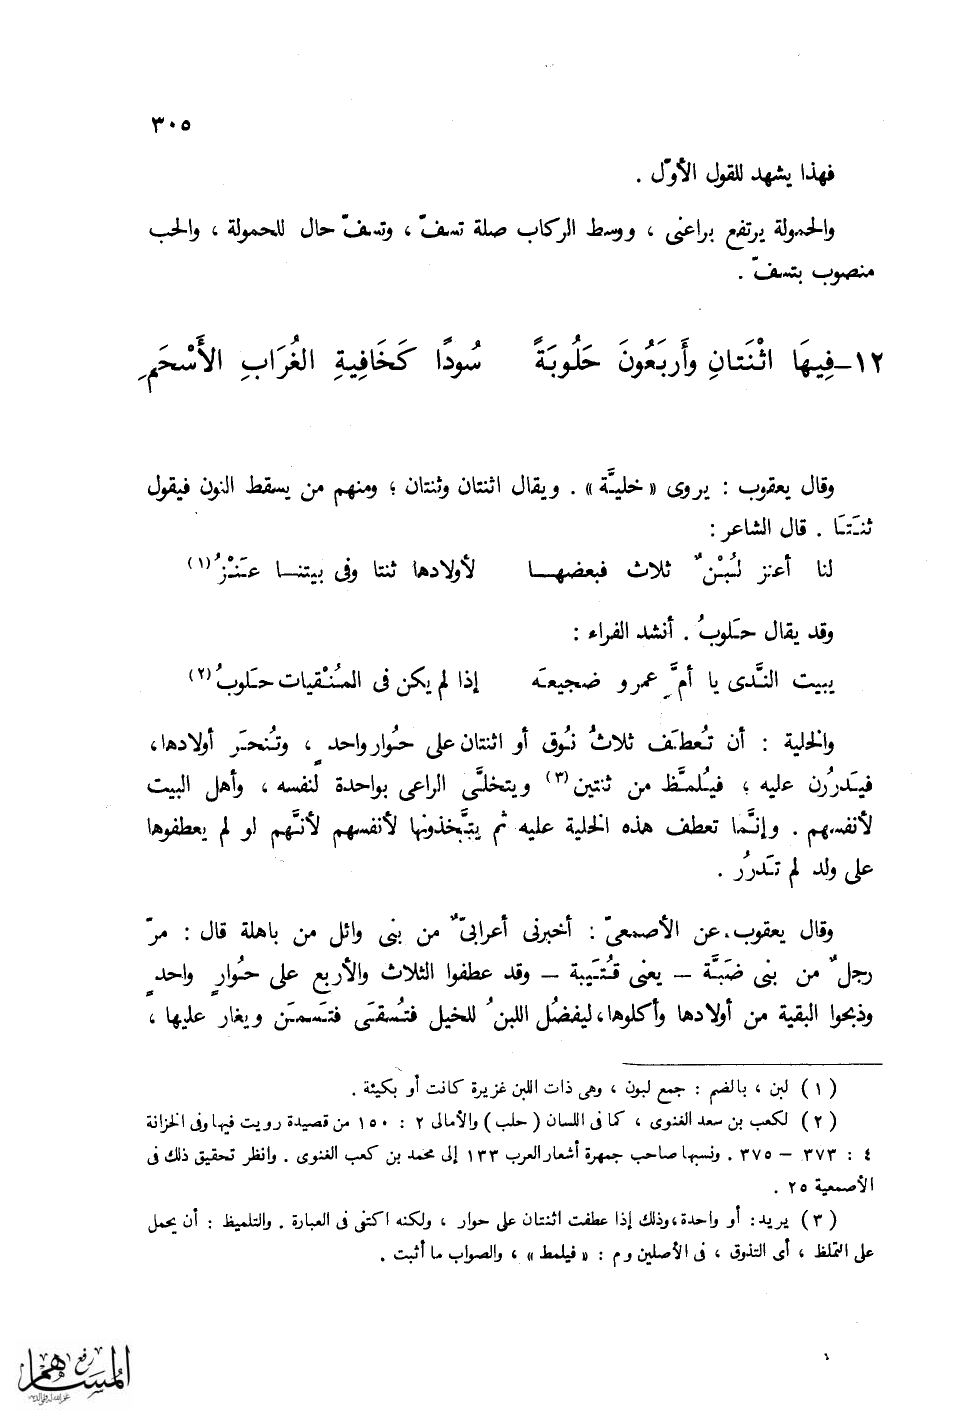 ٣٠٥
فهذا يشهد للقول الأوّل .
والحمولة يرتفع براعنى ، ووسط الركاب صلة تسفّ ، وتسفّ حال للحمولة ، والحب
منصوب بتسفّ .
١٢ــ فِيهَا اثْنَتانِ وأَربَعُونَ حَلُوبَةً سُودًا كَخَافِيةِ الغُرَابِ الأَسْحَمِ
وقال يعقوب : يروى « خليَّة » . ويقال اثنتان وثنتان ؛ ومنهم من يسقط النون فيقول
ثنَتَا . قال الشاعر :
لنا أعنز لُبْنٌ ثلاث فبعضهــا لأولادها ثنتا وفى بيتنــا عَنْزُ(١)
وقد يقال حَلوبُ . أنشد الفراء :
يبيت النَّدى يا أمَّ عمرو ضجيعه إذا لم يكن فى المُنْقيات حَلوبُ(٢)
والخلية : أن تُعطَف ثلاثُ نُوق أو اثنتان على حُوار واحدٍ ، وتُنحَر أولادها،
فيَدرُرن عليه ؛ فيُلمَّظ من ثنتين(٣) ويتخلَّى الراعى بواحدة لنفسه ، وأهل البيت
لأنفسهم . وإنَّما تعطف هذه الخلية عليه ثم يتَّخذونها لأنفسهم لأنَّهم لو لم يعطفوها
على ولد لم تَدرُرْ .
وقال يعقوب، عن الأصمعىّ : أخبرنى أعرابىٌّ من بنى وائل من باهلة قال : مرّ
رجلٌ من بنى ضَبَّة – يعنى قُتَيبة – وقد عطفوا الثلاث والأربع على حُوارٍ واحدٍ
وذبحوا البقية من أولادها وأكلوها، ليفضُل اللبنُ للخيل فتُسقَى فتَسمَن ويغار عليها ،
(١) لبن ، بالضم : جمع لبون ، وهى ذات اللبن غزيرة كانت أو بكيئة .
(٢) لكعب بن سعد الغنوى ، كما فى اللسان ( حلب ) والأمالى ٢ : ١٥٠ من قصيدة رويت فيها وفى الخزانة
٤ : ٣٧٣ – ٣٧٥ . ونسبها صاحب جمهرة أشعار العرب ١٣٣ إلى محمد بن كعب الغنوى . وانظر تحقيق ذلك فى
الأصمعية ٢٥ .
(٣) يريد: أو واحدة، وذلك إذا عطفت اثنتان على حوار ، ولكنه اكتفى فى العبارة . والتلميظ : أن يحمل
على التلمظ ، أى التذوق ، فى الأصلين وم : « فيلمط » ، والصواب ما أثبت .